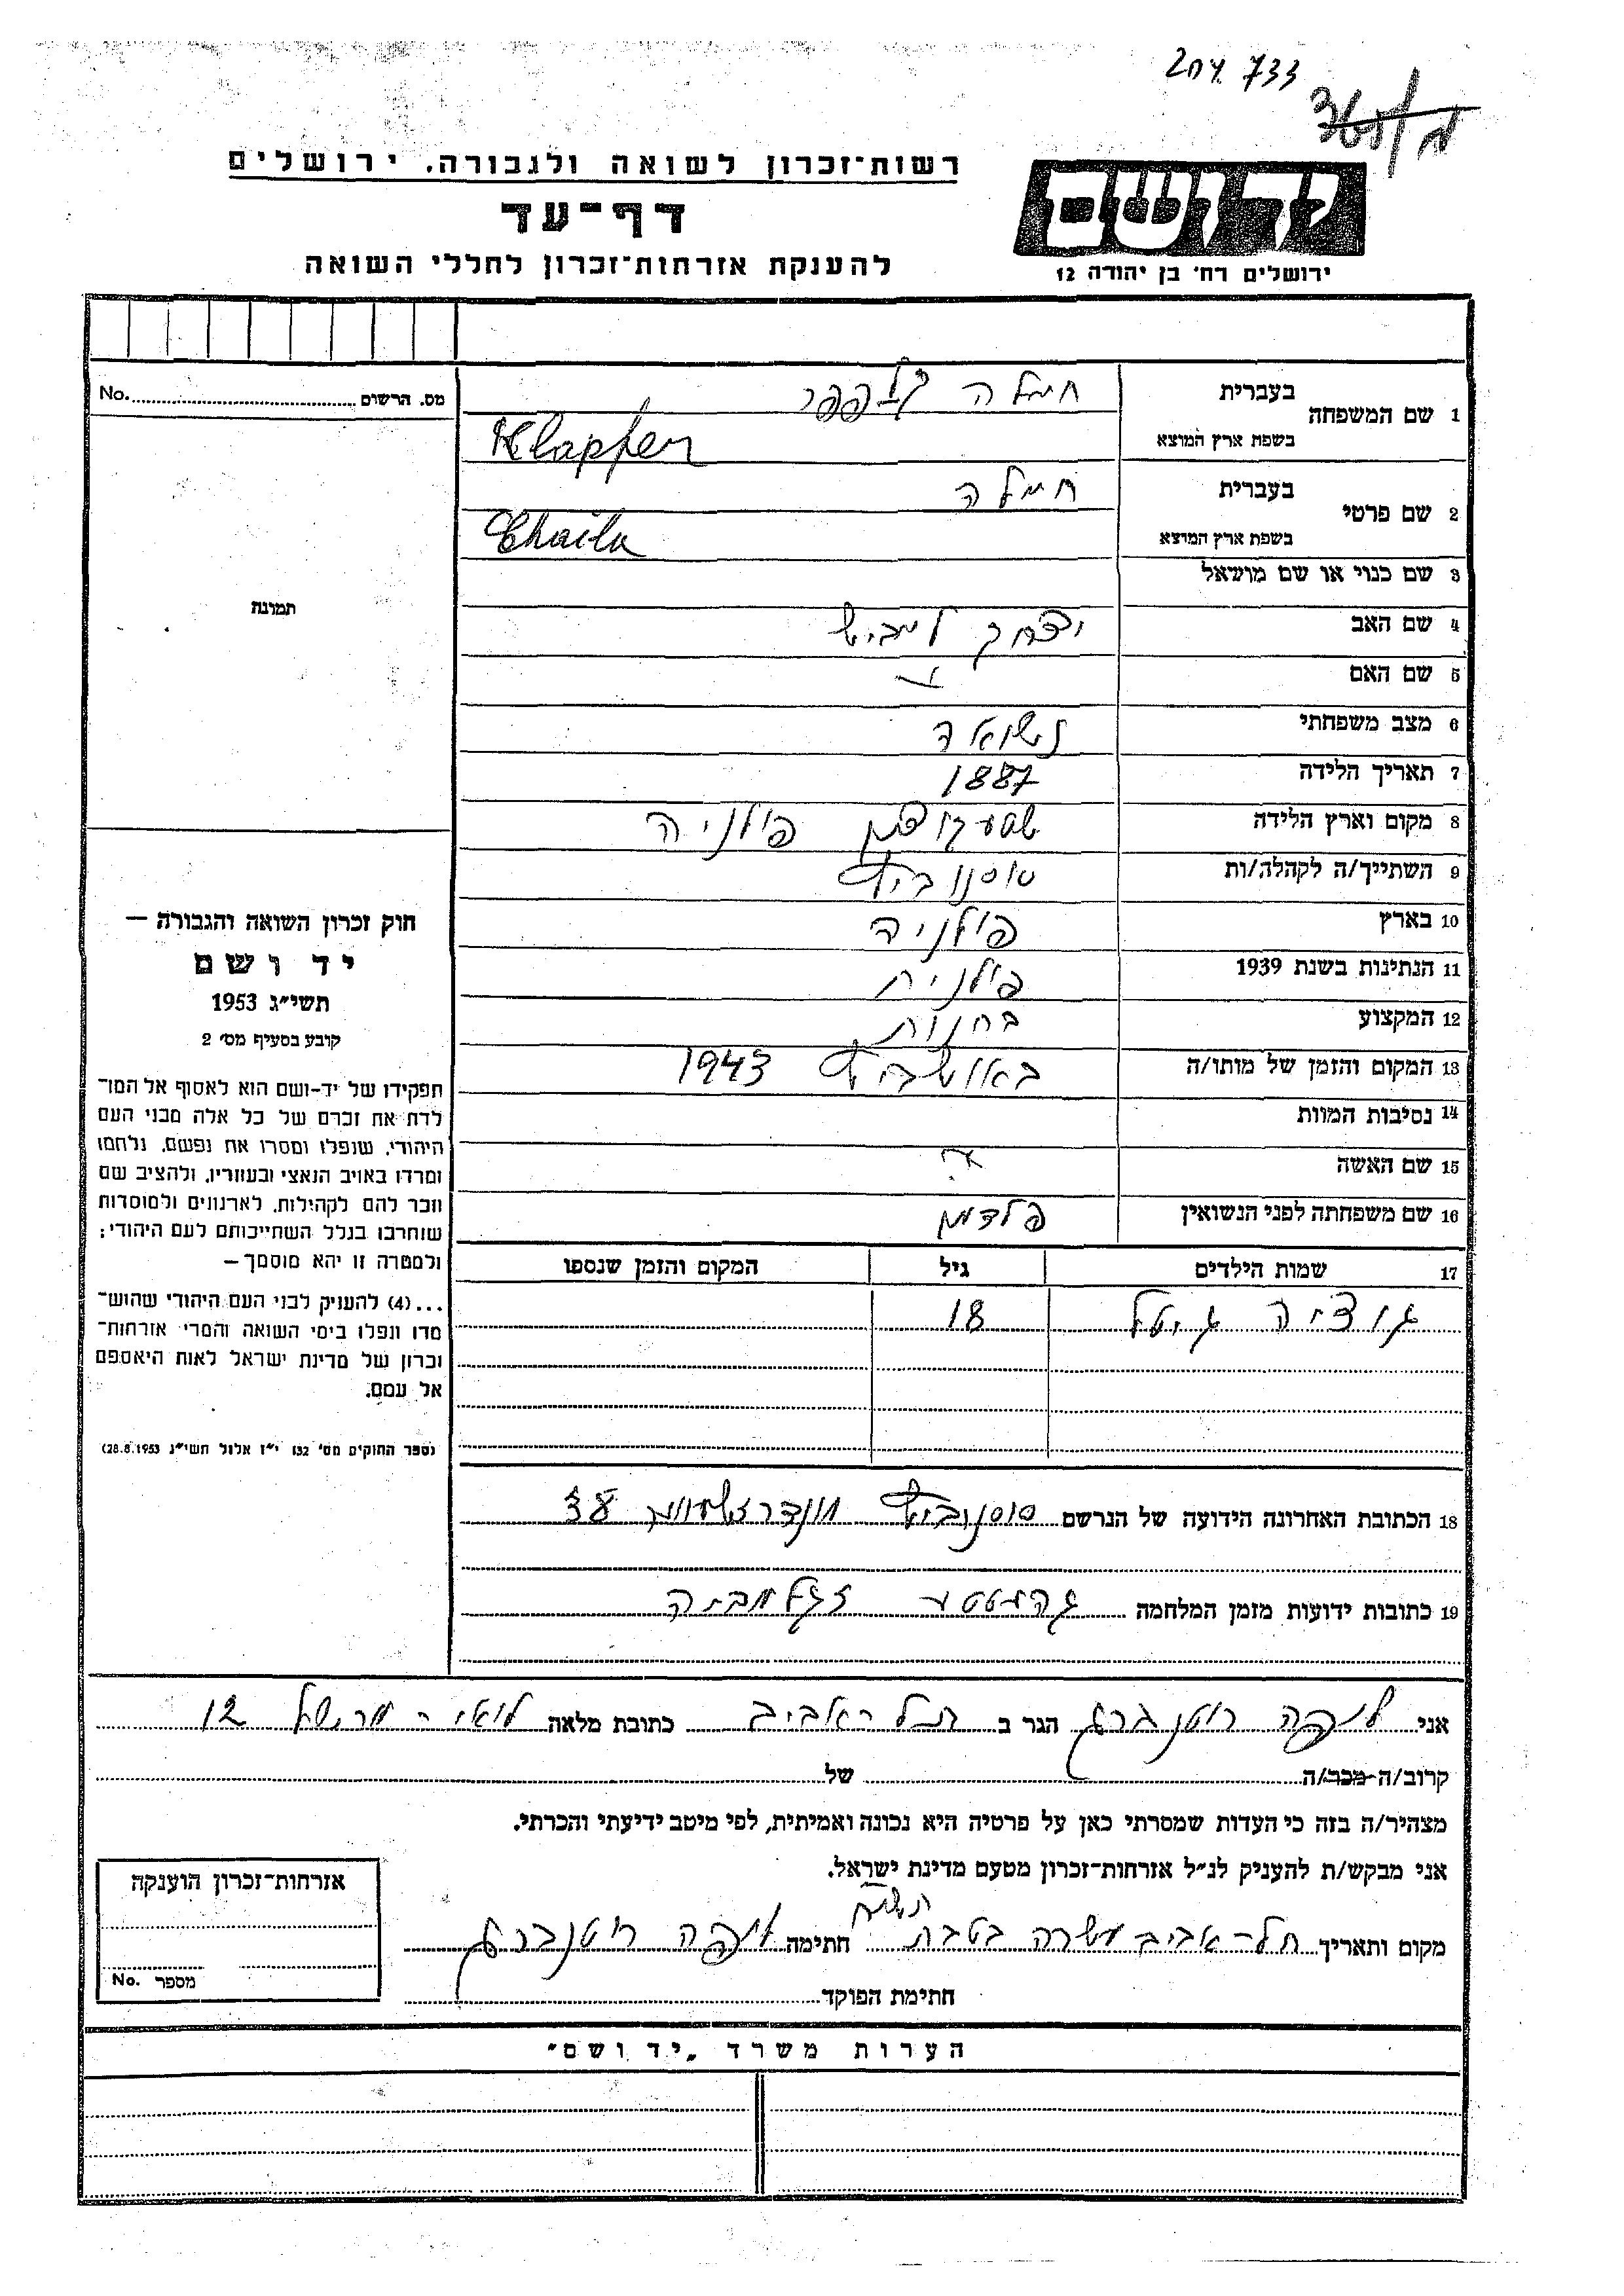 204 733
רשות־זכרון לשואה ולגבורה. ירושלים
דף־עד
להענקת אזרחות־זכרון לחללי השואה
יד ושם
ירושלים רח׳ בן יהודה 12
מס. הרשום No.
תמונה
חוק זכרון השואה והגבורה —
יד ושם
תשי״ג 1953
קובע בסעיף מס׳ 2
תפקידו של יד-ושם הוא לאסוף אל המו־
לדת את זכרם של כל אלה מבני העם
היהודי, שנפלו ומסרו את נפשם, נלחמו
ומרדו באויב הנאצי ובעוזריו, ולהציב שם
וזכר להם לקהילות, לארגונים ולמוסדות
שנחרבו בגלל השתייכותם לעם היהודי;
ולמטרה זו יהא מוסמך —
...(4) להעניק לבני העם היהודי שהוש־
מדו ונפלו בימי השואה והמרי אזרחות־
זכרון של מדינת ישראל לאות היאספם
אל עמם.
(ספר החוקים מס׳ 132 י״ז אלול תשי״ג 28.8.1953)
1 שם המשפחה בעברית חילה קלפפר
בשפת ארץ המוצא Klapper
2 שם פרטי בעברית חילה
בשפת ארץ המוצא Chaila
3 שם כנוי או שם מושאל
4 שם האב יצחק לייביש
5 שם האם
6 מצב משפחתי נשואה
7 תאריך הלידה 1887
8 מקום וארץ הלידה פולניה
9 השתייך/ה לקהלה/ות סוסנוביץ
10 בארץ פולניה
11 הנתינות בשנת 1939 פולנית
12 המקצוע בחנות
13 המקום והזמן של מותו/ה באושביץ 1943
14 נסיבות המוות
15 שם האשה
16 שם משפחתה לפני הנשואין פלדמן
17 שמות הילדים גיל המקום והזמן שנספו
גיטל 18
18 הכתובת האחרונה הידועה של הנרשם סוסנוביץ 38
19 כתובות ידועות מזמן המלחמה
אני ליפה רוטנברג הגר ב תל-אביב כתובת מלאה לואי-מרשל 12
קרוב/ה מכר/ה של
מצהיר/ה בזה כי העדות שמסרתי כאן על פרטיה היא נכונה ואמיתית, לפי מיטב ידיעתי והכרתי.
אני מבקש/ת להעניק לנ״ל אזרחות-זכרון מטעם מדינת ישראל.
מקום ותאריך תל-אביב עשרה בטבת חתימה ליפה רוטנברג
חתימת הפוקד
אזרחות-זכרון הוענקה
מספר No.
הערות משרד „יד ושם״